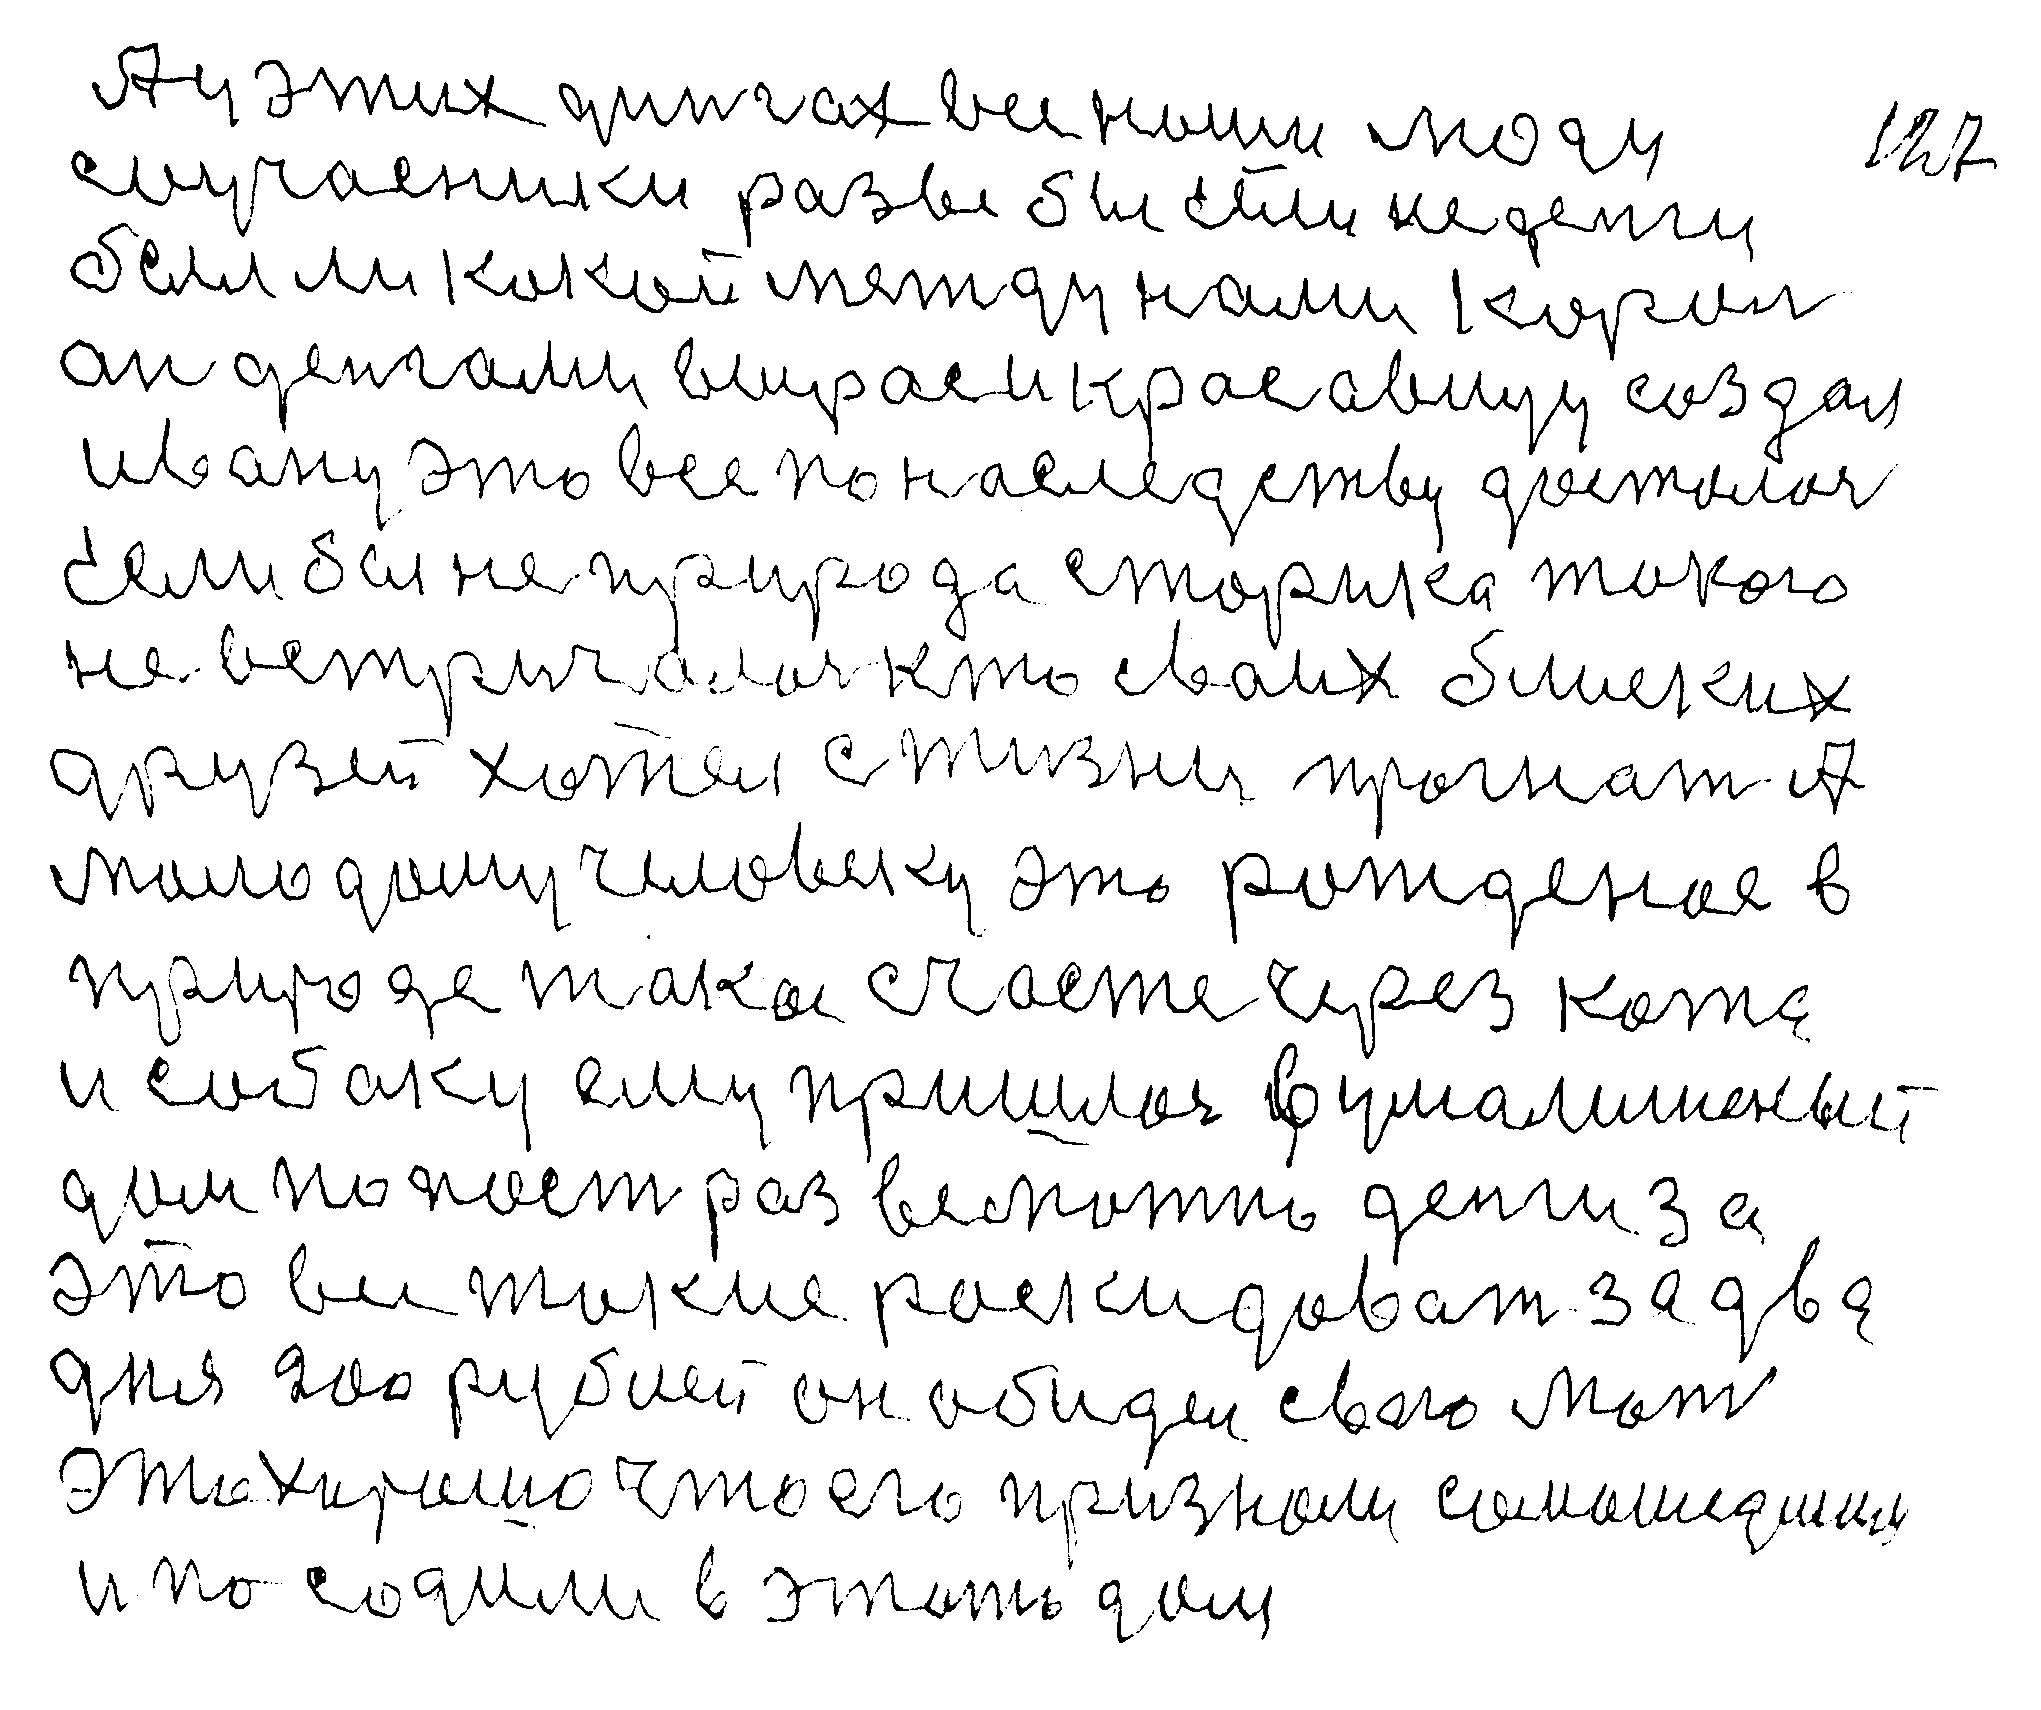 А у этих дингах все наши люди 127
случасники разве бы если не денги
был ли какой между нами король
он денгами выраси красавицу создал
ивану это все по наследству досталоя
если был не природа сторика такого
не встричалоя кто сваих блиских
друзей хотел с жизни прогнат А
молодому человеку это рождение в
природе такое счасте через кота
и собаку ему пришлоя в умалишеный
дом попаст разве можно денги за
это все такие раскидоват за два
дня 200 рублей он обидел свою мат
это хорошо что его признали сомошедшим
и посодили в этоть дом